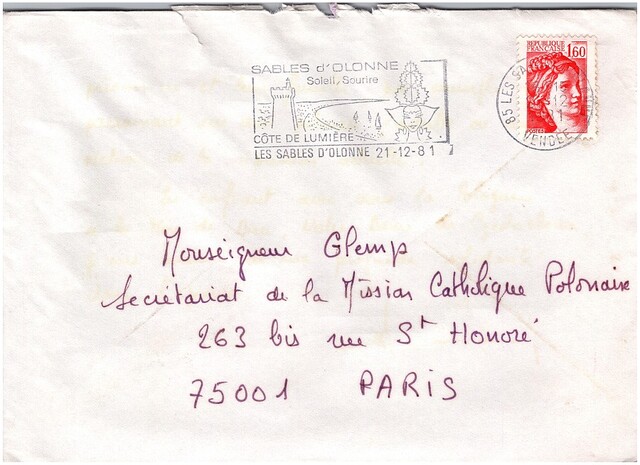 SABLES d'OLONNE
Soleil, Sourire
CÔTE DE LUMIÈRE
LES SABLES D'OLONNE 21-12-81
REPUBLIQUE
FRANÇAISE 1,60
POSTES
85 LES SA
VENDEE
Monseigneur Glemp
Secrétariat de la Mission Catholique Polonaise
263 bis rue St Honoré
75001 PARIS